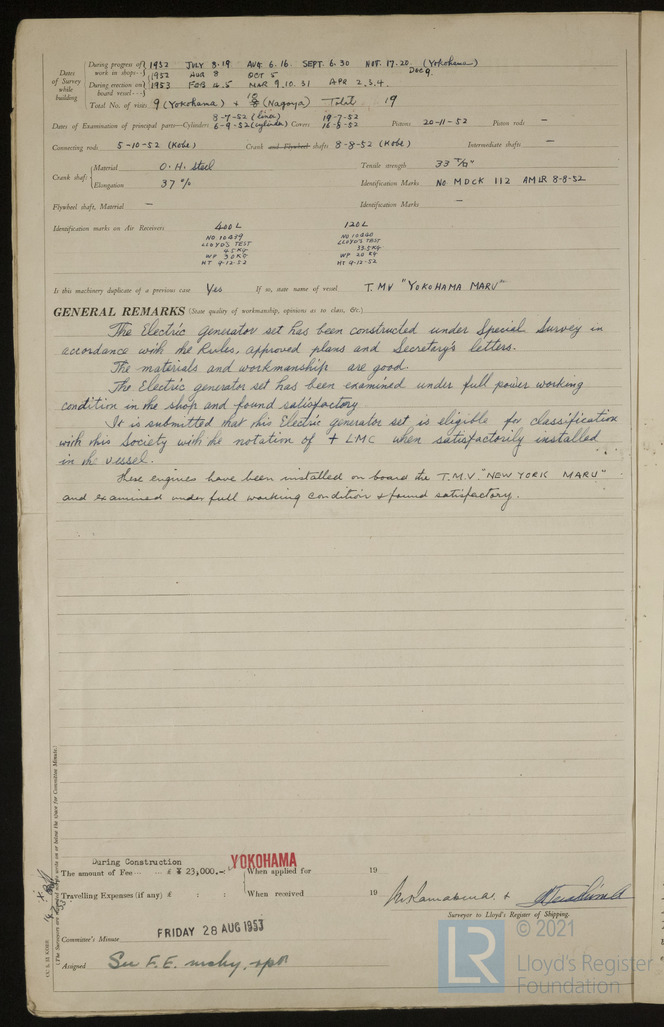 Dates of Survey while building
During progress of work in shops 1952 JULY 8.19 AUG 6.16. SEPT. 6.30 NOV. 17.20. (Yokohama) DEC 9
1952 AUG 8 OCT 5
During erection on board vessel 1953 FEB 4.5 MAR 9.10.31 APR 2.3.4.
Total No. of visits 9 (Yokohama) + (Nagoya) Total 19
8-7-52 (liner) 19-7-52
Dates of Examination of principal parts—Cylinders 6-9-52 (cylinder) Covers 16-8-52 Pistons 20-11-52 Piston rods —
Connecting rods 5-10-52 (Kobe) Crank and Flywheel shafts 8-8-52 (Kobe) Intermediate shafts —
Crank shaft Material O.H. steel Tensile strength 33 T/□"
Elongation 37 % Identification Marks NO MDCK 112 AMLR 8-8-52
Flywheel shaft, Material — Identification Marks —
Identification marks on Air Receivers 400 L 120 L
NO. 10439 NO 10440
LLOYD'S TEST LLOYD'S TEST
45 KG 33.5 KG
WP 30 KG WP 20 KG
HT 9-12-52 HT 9-12-52
Is this machinery duplicate of a previous case Yes If so, state name of vessel T.M.V "YOKOHAMA MARU"
GENERAL REMARKS (State quality of workmanship, opinions as to class, &c.)
The Electric generator set has been constructed under Special Survey in
accordance with the Rules, approved plans and Secretary's letters.
The materials and workmanship are good.
The Electric generator set has been examined under full power working
condition in the shop and found satisfactory
It is submitted that this Electric generator set is eligible for classification
with this Society with the notation of + LMC when satisfactorily installed
in the vessel.
These engines have been installed on board the T.M.V. "NEW YORK MARU"
and examined under full working condition & found satisfactory.
During Construction
YOKOHAMA
The amount of Fee £ ¥ 23,000.- When applied for 19
Travelling Expenses (if any) £ : : When received 19
Surveyor to Lloyd's Register of Shipping.
Committee's Minute FRIDAY 28 AUG 1953
Assigned See F.E. mchy. rpt
(The Surveyors are requested not to write on or below the space for Committee Minute.)
LR
© 2021
Lloyd's Register
Foundation